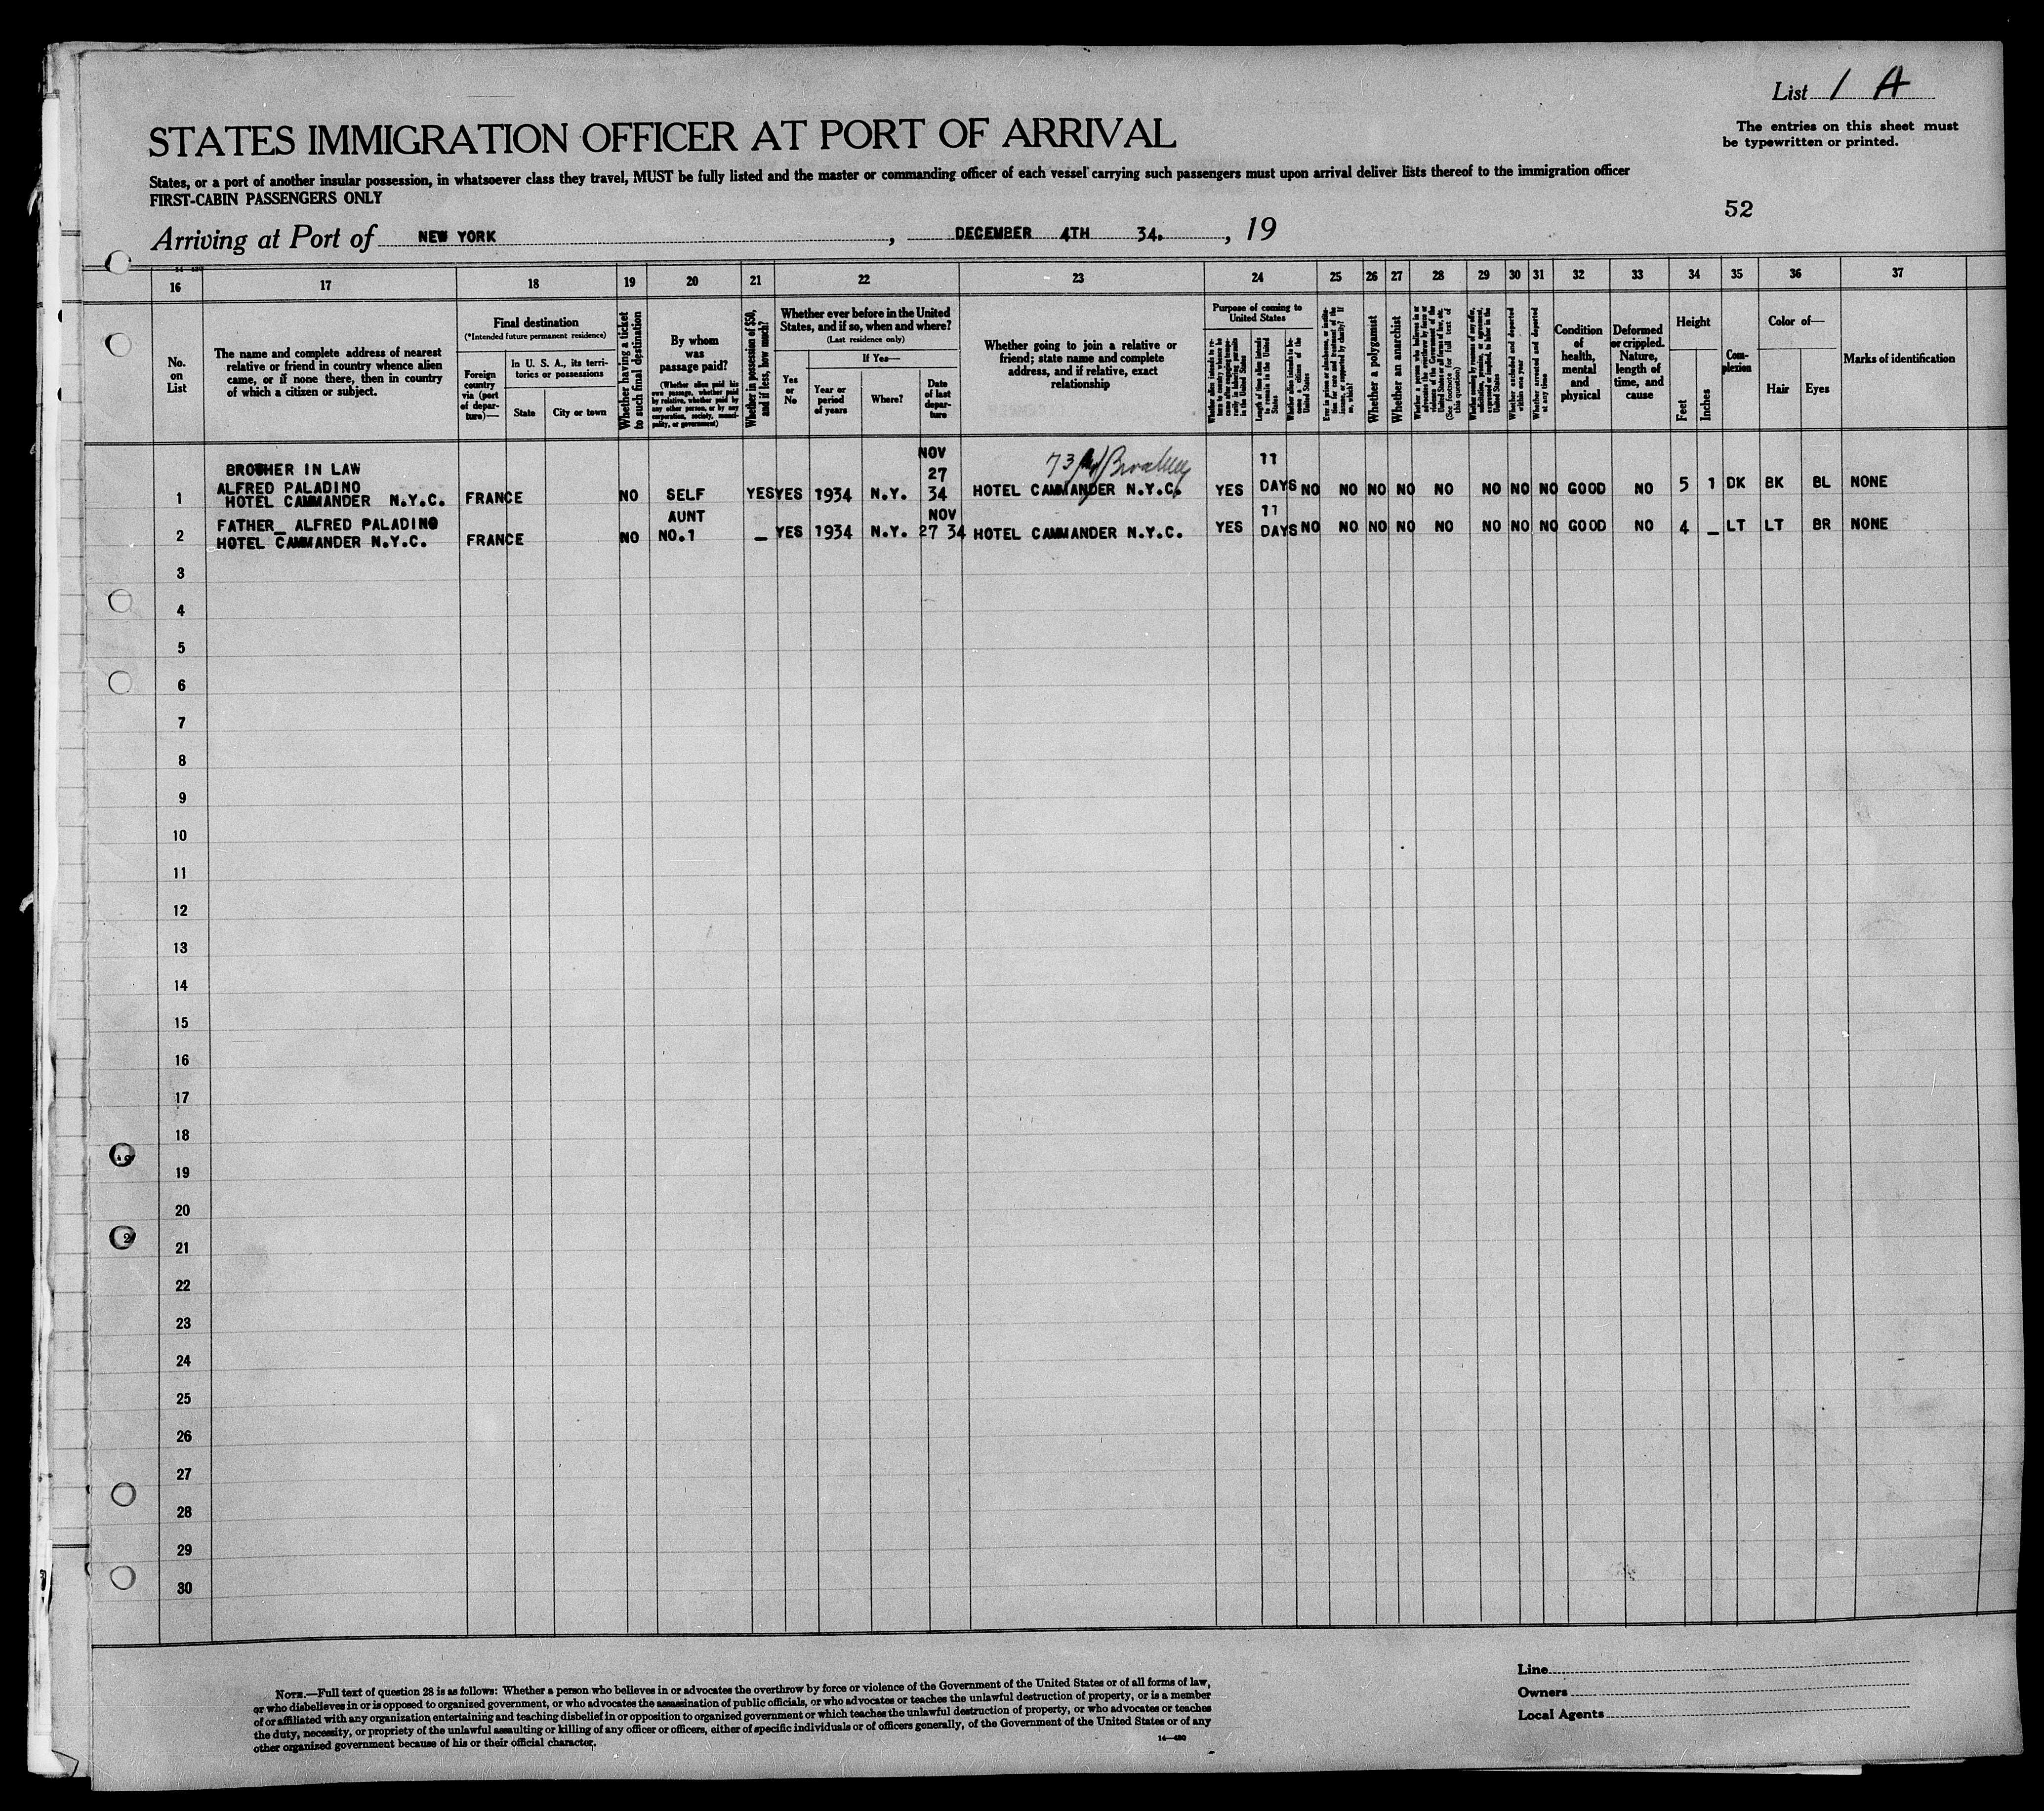 List 1 A
STATES IMMIGRATION OFFICER AT PORT OF ARRIVAL
The entries on this sheet must
be typewritten or printed.
States, or a port of another insular possession, in whatsoever class they travel, MUST be fully listed and the master or commanding officer of each vessel carrying such passengers must upon arrival deliver lists thereof to the immigration officer
FIRST-CABIN PASSENGERS ONLY
52
Arriving at Port of NEW YORK , DECEMBER 4TH 34. , 19
16 17 18 19 20 21 22 23 24 25 26 27 28 29 30 31 32 33 34 35 36 37
No.
on
List
The name and complete address of nearest
relative or friend in country whence alien
came, or if none there, then in country
of which a citizen or subject.
Final destination
(*Intended future permanent residence)
Foreign
country
via (port
of depar-
ture)—
In U. S. A., its terri-
tories or possessions
State
City or town
Whether having a ticket
to such final destination
By whom
was
passage paid?
(Whether alien paid his
own passage, whether paid
by relative, whether paid by
any other person, or by any
corporation, society, munici-
pality, or government)
Whether in possession of $50,
and if less, how much?
Whether ever before in the United
States, and if so, when and where?
(Last residence only)
Yes
or
No
If Yes—
Year or
period
of years
Where?
Date
of last
depar-
ture
Whether going to join a relative or
friend; state name and complete
address, and if relative, exact
relationship
Purpose of coming to
United States
Whether alien intends to re-
turn to country whence he
came after engaging tempo-
rarily in laboring pursuits
in the United States
Length of time alien intends
to remain in the United
States
Whether alien intends to be-
come a citizen of the
United States
Ever in prison or almshouse, or institu-
tion for care and treatment of the
insane, or supported by charity? If
so, which?
Whether a polygamist
Whether an anarchist
Whether a person who believes in or
advocates the overthrow by force or
violence of the Government of the
United States or all forms of law, etc.
(See footnote for full text of
this question)
Whether coming by reason of any offer,
solicitation, promise, or agreement,
expressed or implied, to labor in the
United States
Whether excluded and deported
within one year
Whether arrested and deported
at any time
Condition
of
health,
mental
and
physical
Deformed
or crippled.
Nature,
length of
time, and
cause
Height
Feet
Inches
Com-
plexion
Color of—
Hair
Eyes
Marks of identification
NOV
BROTHER IN LAW 27 11
ALFRED PALADINO
1 HOTEL CAMMANDER N.Y.C. FRANCE NO SELF YES YES 1934 N.Y. 34 HOTEL CAMMANDER N.Y.C. YES DAYS NO NO NO NO NO NO NO NO GOOD NO 5 1 DK BK BL NONE
FATHER_ ALFRED PALADINO AUNT NOV 11
2 HOTEL CAMMANDER N.Y.C. FRANCE NO NO.1 _ YES 1934 N.Y. 27 34 HOTEL CAMMANDER N.Y.C. YES DAYS NO NO NO NO NO NO NO NO GOOD NO 4 _ LT LT BR NONE
3
4
5
6
7
8
9
10
11
12
13
14
15
16
17
18
19
20
21
22
23
24
25
26
27
28
29
30
NOTE.—Full text of question 28 is as follows: Whether a person who believes in or advocates the overthrow by force or violence of the Government of the United States or of all forms of law,
or who disbelieves in or is opposed to organized government, or who advocates the assassination of public officials, or who advocates or teaches the unlawful destruction of property, or is a member
of or affiliated with any organization entertaining and teaching disbelief in or opposition to organized government or which teaches the unlawful destruction of property, or who advocates or teaches
the duty, necessity, or propriety of the unlawful assaulting or killing of any officer or officers, either of specific individuals or of officers generally, of the Government of the United States or of any
other organized government because of his or their official character.
14—430
Line
Owners
Local Agents